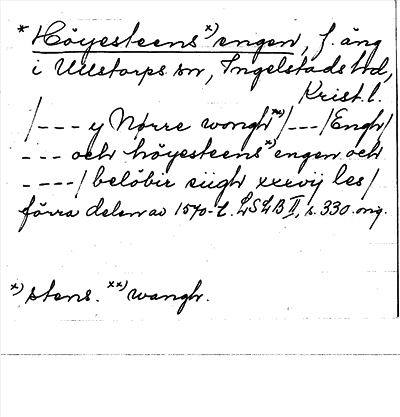 * Höyesteens x) engen, f. äng
i Ullstorps sn, Ingelstads hd,
Krist. l.
/--- y Nørre wongh xx) /---/ Engh/
--- och höyesteens x) engen och
----/ belöbir siigh xxxvij les/
förra delen av 1570-t. LSLB II, s. 330. orig.
x) stens. xx) wangh.